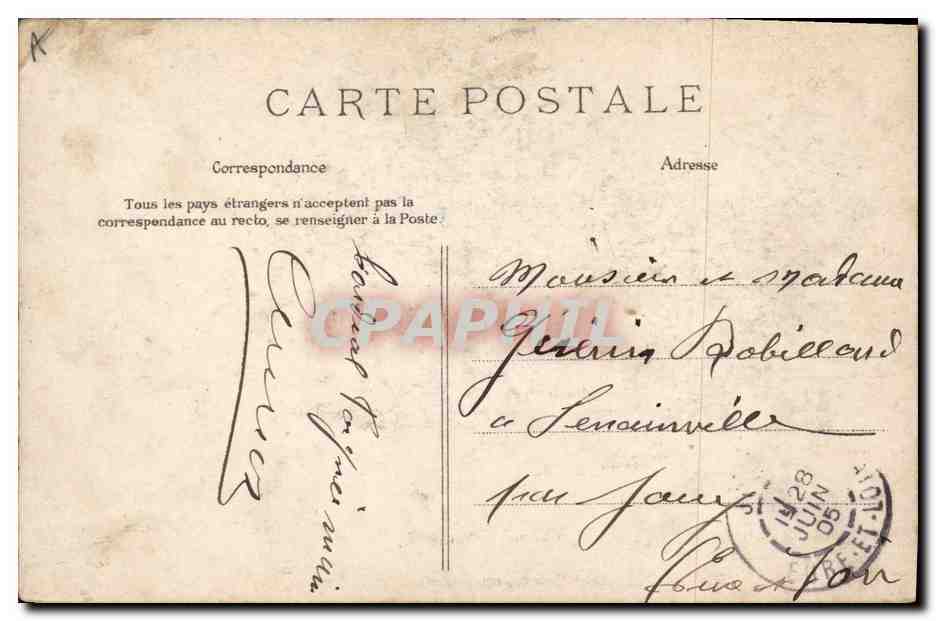 A
CARTE POSTALE
Correspondance
Adresse
Tous les pays étrangers n'acceptent pas la
correspondance au recto, se renseigner à la Poste.
Cordial
Monsieur et Madame
Robillard
a Senainville
par Jouy
Eure et Loir
28
JUIN
05
EURE-ET-LOIR
CPAPHIL